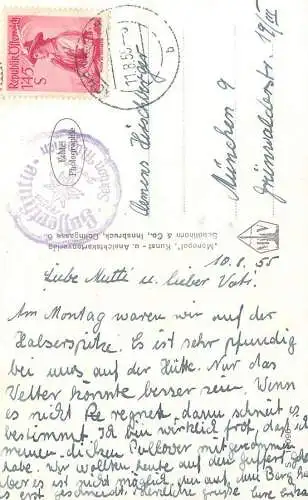 Republik Österreich
145
S
11.8.55
b
Clemens Hirschberger
München 9
Grünwalderstr. 19/III
Echte
Photographie
"Monopol", Kunst- u. Ansichtskartenverlag
Schöllhorn & Co., Innsbruck, Dollingasse
10.8.55
Liebe Mutti u. lieber Vati.
Am Montag waren wir auf der
Halserspitze. Es ist sehr pfundig
bei uns auf der Hütte. Nur das
Wetter könnte besser sein. Wenn
es nicht regnet, dann schneit es
bestimmt. Ich bin wirklich froh, daß ich
meinen dicken Pullover mitgenommen
habe. Wir wollten heute auf den
aber es ist nicht möglich, denn auf dem Berg hat
es erst geschneit. Herzliche Grüße Eure